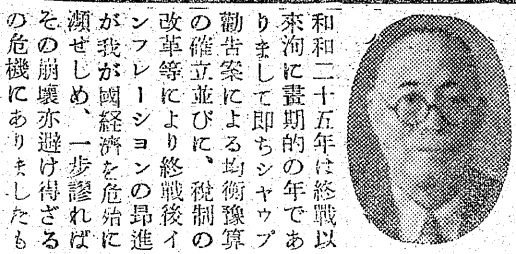 和和二十五年は終戰以
來洵に畫期的の年であ
りまして即ちシヤウプ
勸告案による均衡豫算
の確立並びに、稅制の
改革等により終戰後イ
ンフレーシヨンの昻進
が我が國経濟を危殆に
瀕ぜしめ、一步謬れば
その崩壞亦避け得ざる
の危機にありましたも